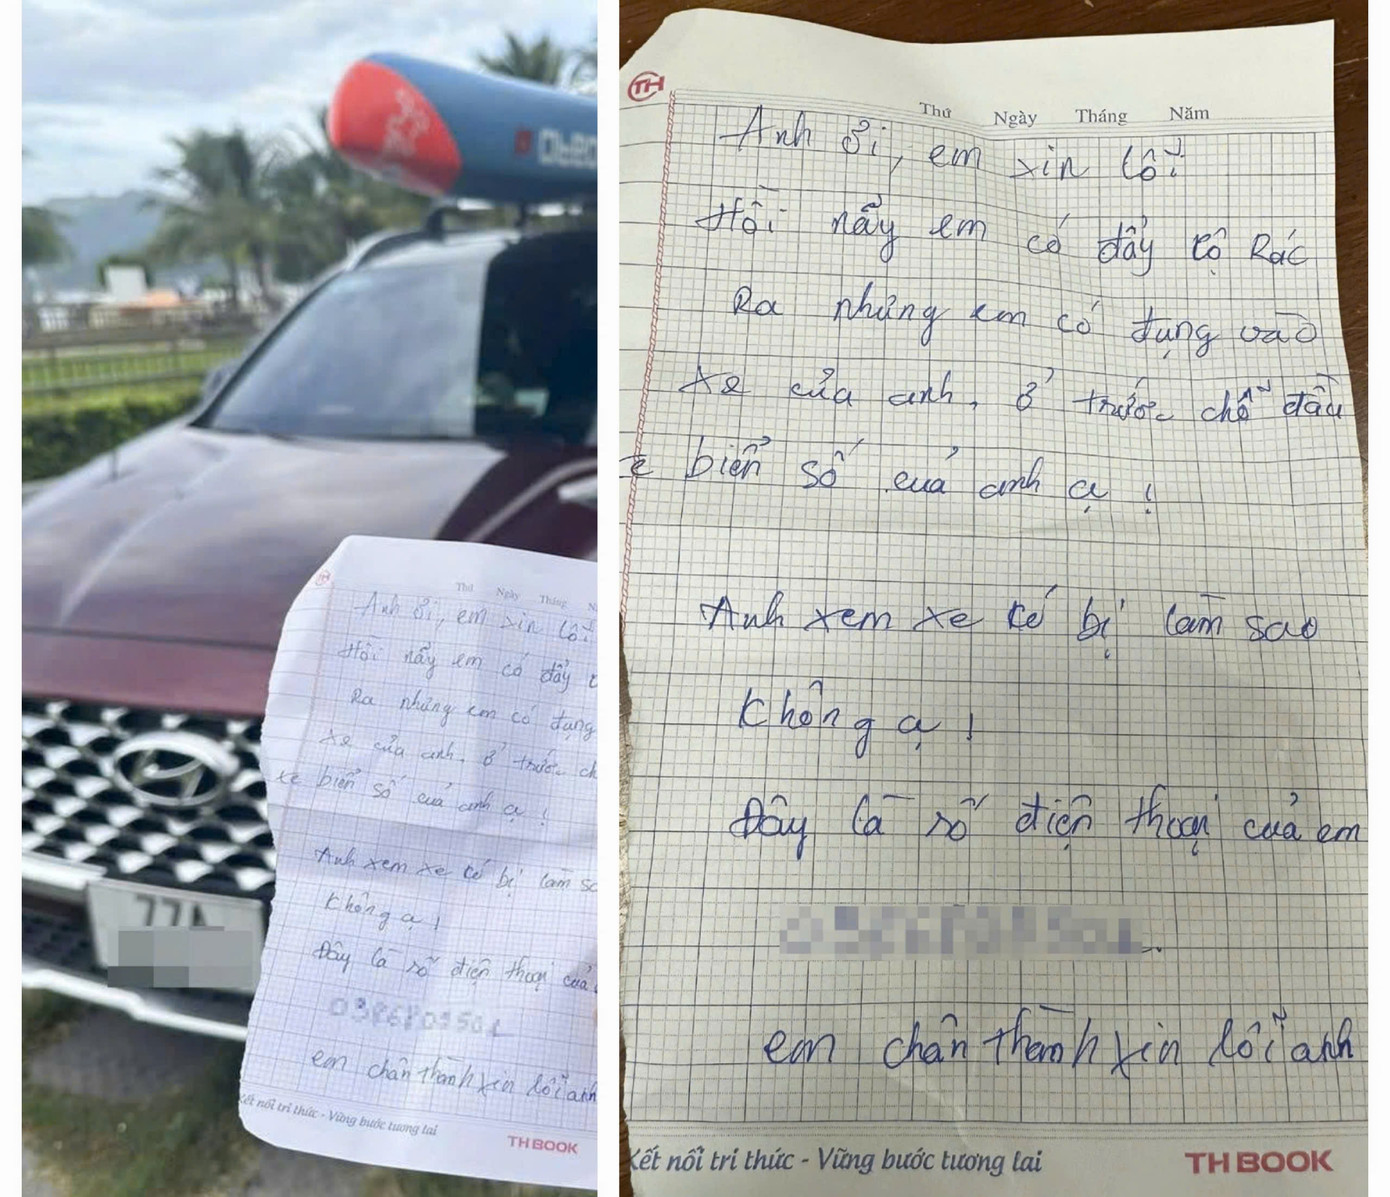 77A
TH
Thứ Ngày Tháng
Anh ơi, em xin lỗi
Hồi nẫy em có đẩy
Ra nhưng em có đụng
xe của anh. ở trước ch
xe biển số của anh ạ !
Anh xem xe có bị làm sa
Không ạ !
Đây là số điện thoại của
em chân thành xin lỗi anh
Kết nối tri thức - Vững bước tương lai
TH BOOK
TH
Thứ Ngày Tháng Năm
Anh ơi, em xin lỗi
Hồi nẫy em có đẩy tộ Rác
Ra nhưng em có đụng vào
xe của anh. ở trước chỗ đầu
xe biển số của anh ạ !
Anh xem xe có bị làm sao
Không ạ !
Đây là số điện thoại của em
em chân thành xin lỗi anh
Kết nối tri thức - Vững bước tương lai
TH BOOK